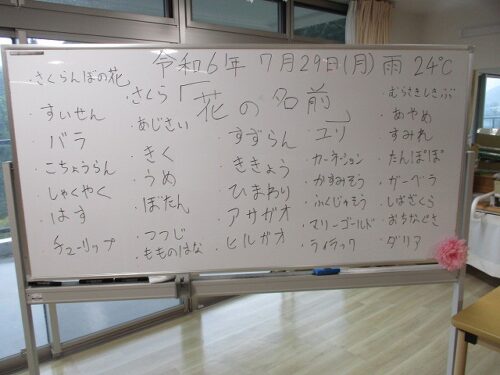 令和6年 7月29日(月) 雨 24℃
「花の名前」
・さくらんぼの花
・すいせん
・バラ
・こちょうらん
・しゃくやく
・はす
・チューリップ
・さくら
・あじさい
・きく
・うめ
・ぼたん
・つつじ
・もものはな
・すずらん
・ききょう
・ひまわり
・アサガオ
・ヒルガオ
・ユリ
・カーネーション
・かすみそう
・ふくじゅそう
・マリーゴールド
・ライラック
・むらさきしきぶ
・あやめ
・すみれ
・たんぽぽ
・ガーベラ
・しばざくら
・おちなぐさ
・ダリア